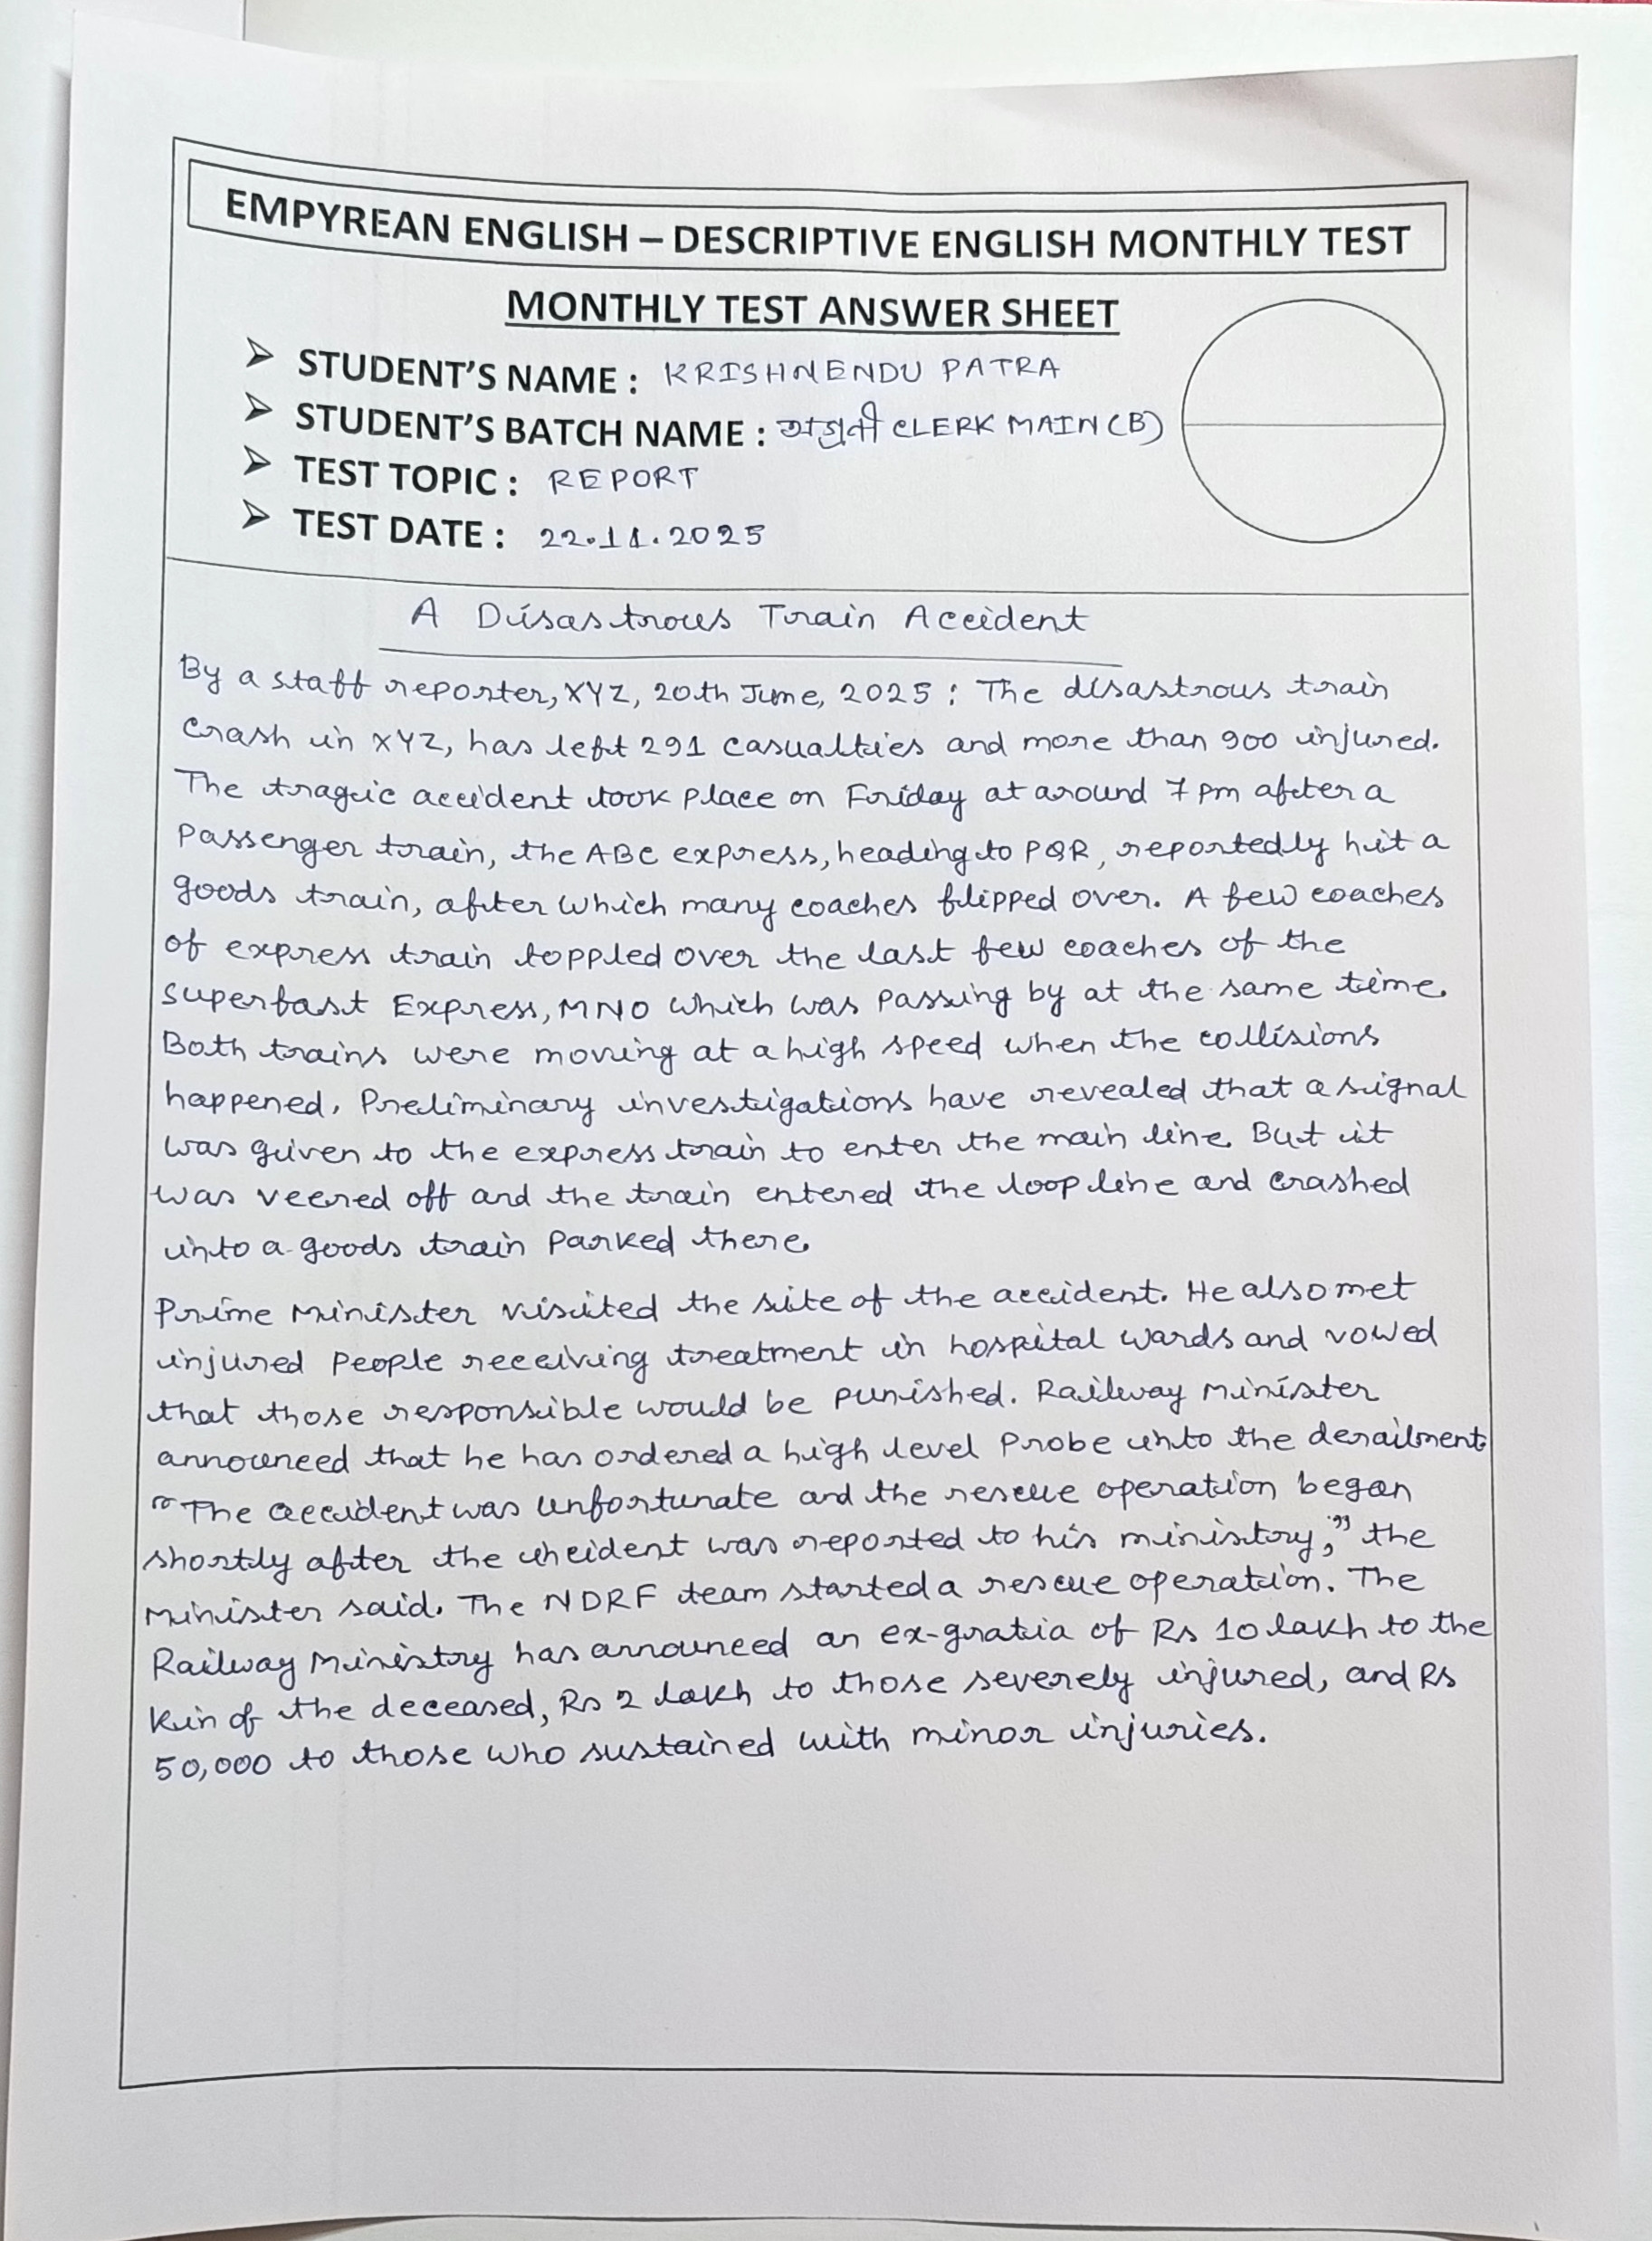 EMPYREAN ENGLISH – DESCRIPTIVE ENGLISH MONTHLY TEST
MONTHLY TEST ANSWER SHEET
➢ STUDENT'S NAME : KRISHNENDU PATRA
➢ STUDENT'S BATCH NAME : অগ্রণী CLERK MAIN (B)
➢ TEST TOPIC : REPORT
➢ TEST DATE : 22.11.2025
A Disastrous Train Accident
By a staff reporter, XYZ, 20th June, 2025 : The disastrous train
crash in XYZ, has left 291 casualties and more than 900 injured.
The tragic accident took place on Friday at around 7 pm after a
passenger train, the ABC express, heading to PQR, reportedly hit a
goods train, after which many coaches flipped over. A few coaches
of express train toppled over the last few coaches of the
superfast Express, MNO which was passing by at the same time.
Both trains were moving at a high speed when the collisions
happened. Preliminary investigations have revealed that a signal
was given to the express train to enter the main line. But it
was veered off and the train entered the loop line and crashed
into a goods train parked there.
Prime Minister visited the site of the accident. He also met
injured people receiving treatment in hospital wards and vowed
that those responsible would be punished. Railway Minister
announced that he has ordered a high level probe into the derailment.
"The accident was unfortunate and the rescue operation began
shortly after the incident was reported to his ministry," the
Minister said. The NDRF team started a rescue operation. The
Railway Ministry has announced an ex-gratia of Rs 10 lakh to the
kin of the deceased, Rs 2 lakh to those severely injured, and Rs
50,000 to those who sustained with minor injuries.